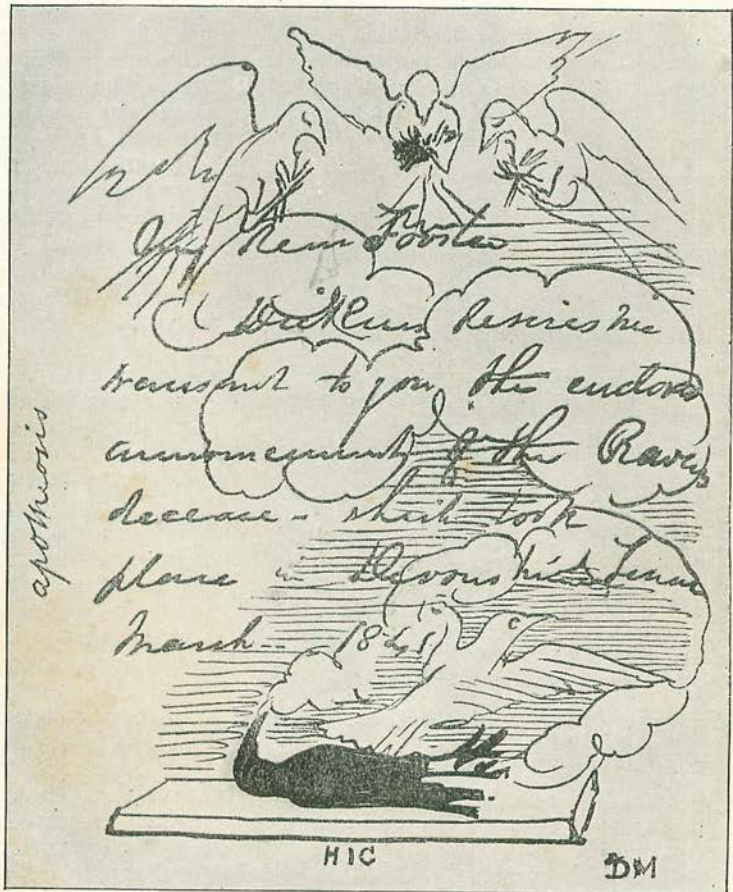 My Dear Forster
Dickens desires me
transmit to you the enclosed
announcement of the Raven's
decease - which took
place in Devonshire Terrace
March - 1841
apotheosis
HIC
DM